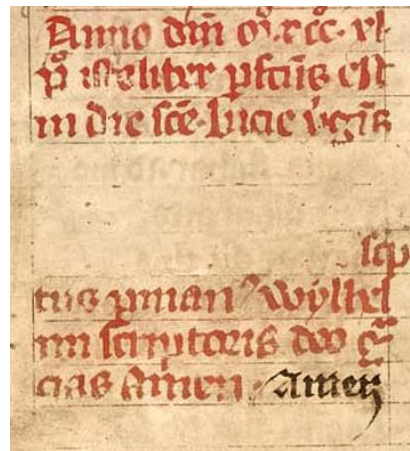 Anno dm̄ m̊.ccc.xl
p̊ iste liber ꝑfcūs est
in die scē. lucie v̓gīs
scͥp
tus ꝑ man᷒ wylhel
mi scriptoris deo gͣ
cias Amen. Amen